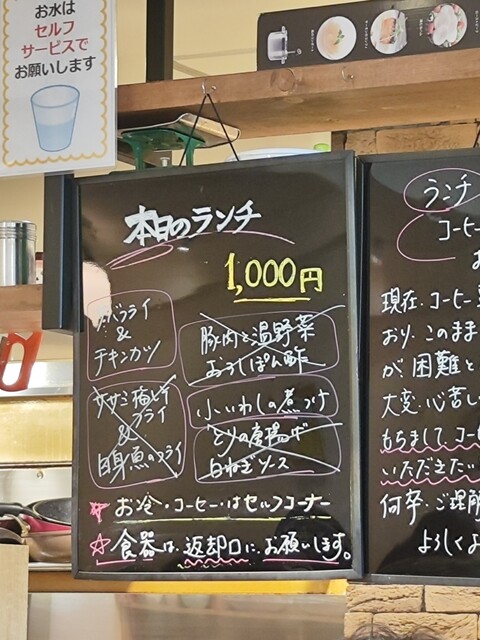 お水は
セルフ
サービスで
お願いします
本日のランチ
1,000円
フライ
&
チキンカツ
豚肉と温野菜
おろしぽん酢
ササミ梅しそ
フライ
&
白身魚のフライ
小いわしの煮つけ
とりの唐揚げ
白ねぎソース
☆ お冷・コーヒーはセルフコーナー
☆ 食器は、返却口に、お願いします。
ランチ
コーヒー
現在、コーヒー
おり、このまま
が困難と
大変、心苦し
もちまして、コー
いただきたい
何卒、ご理解
よろしく